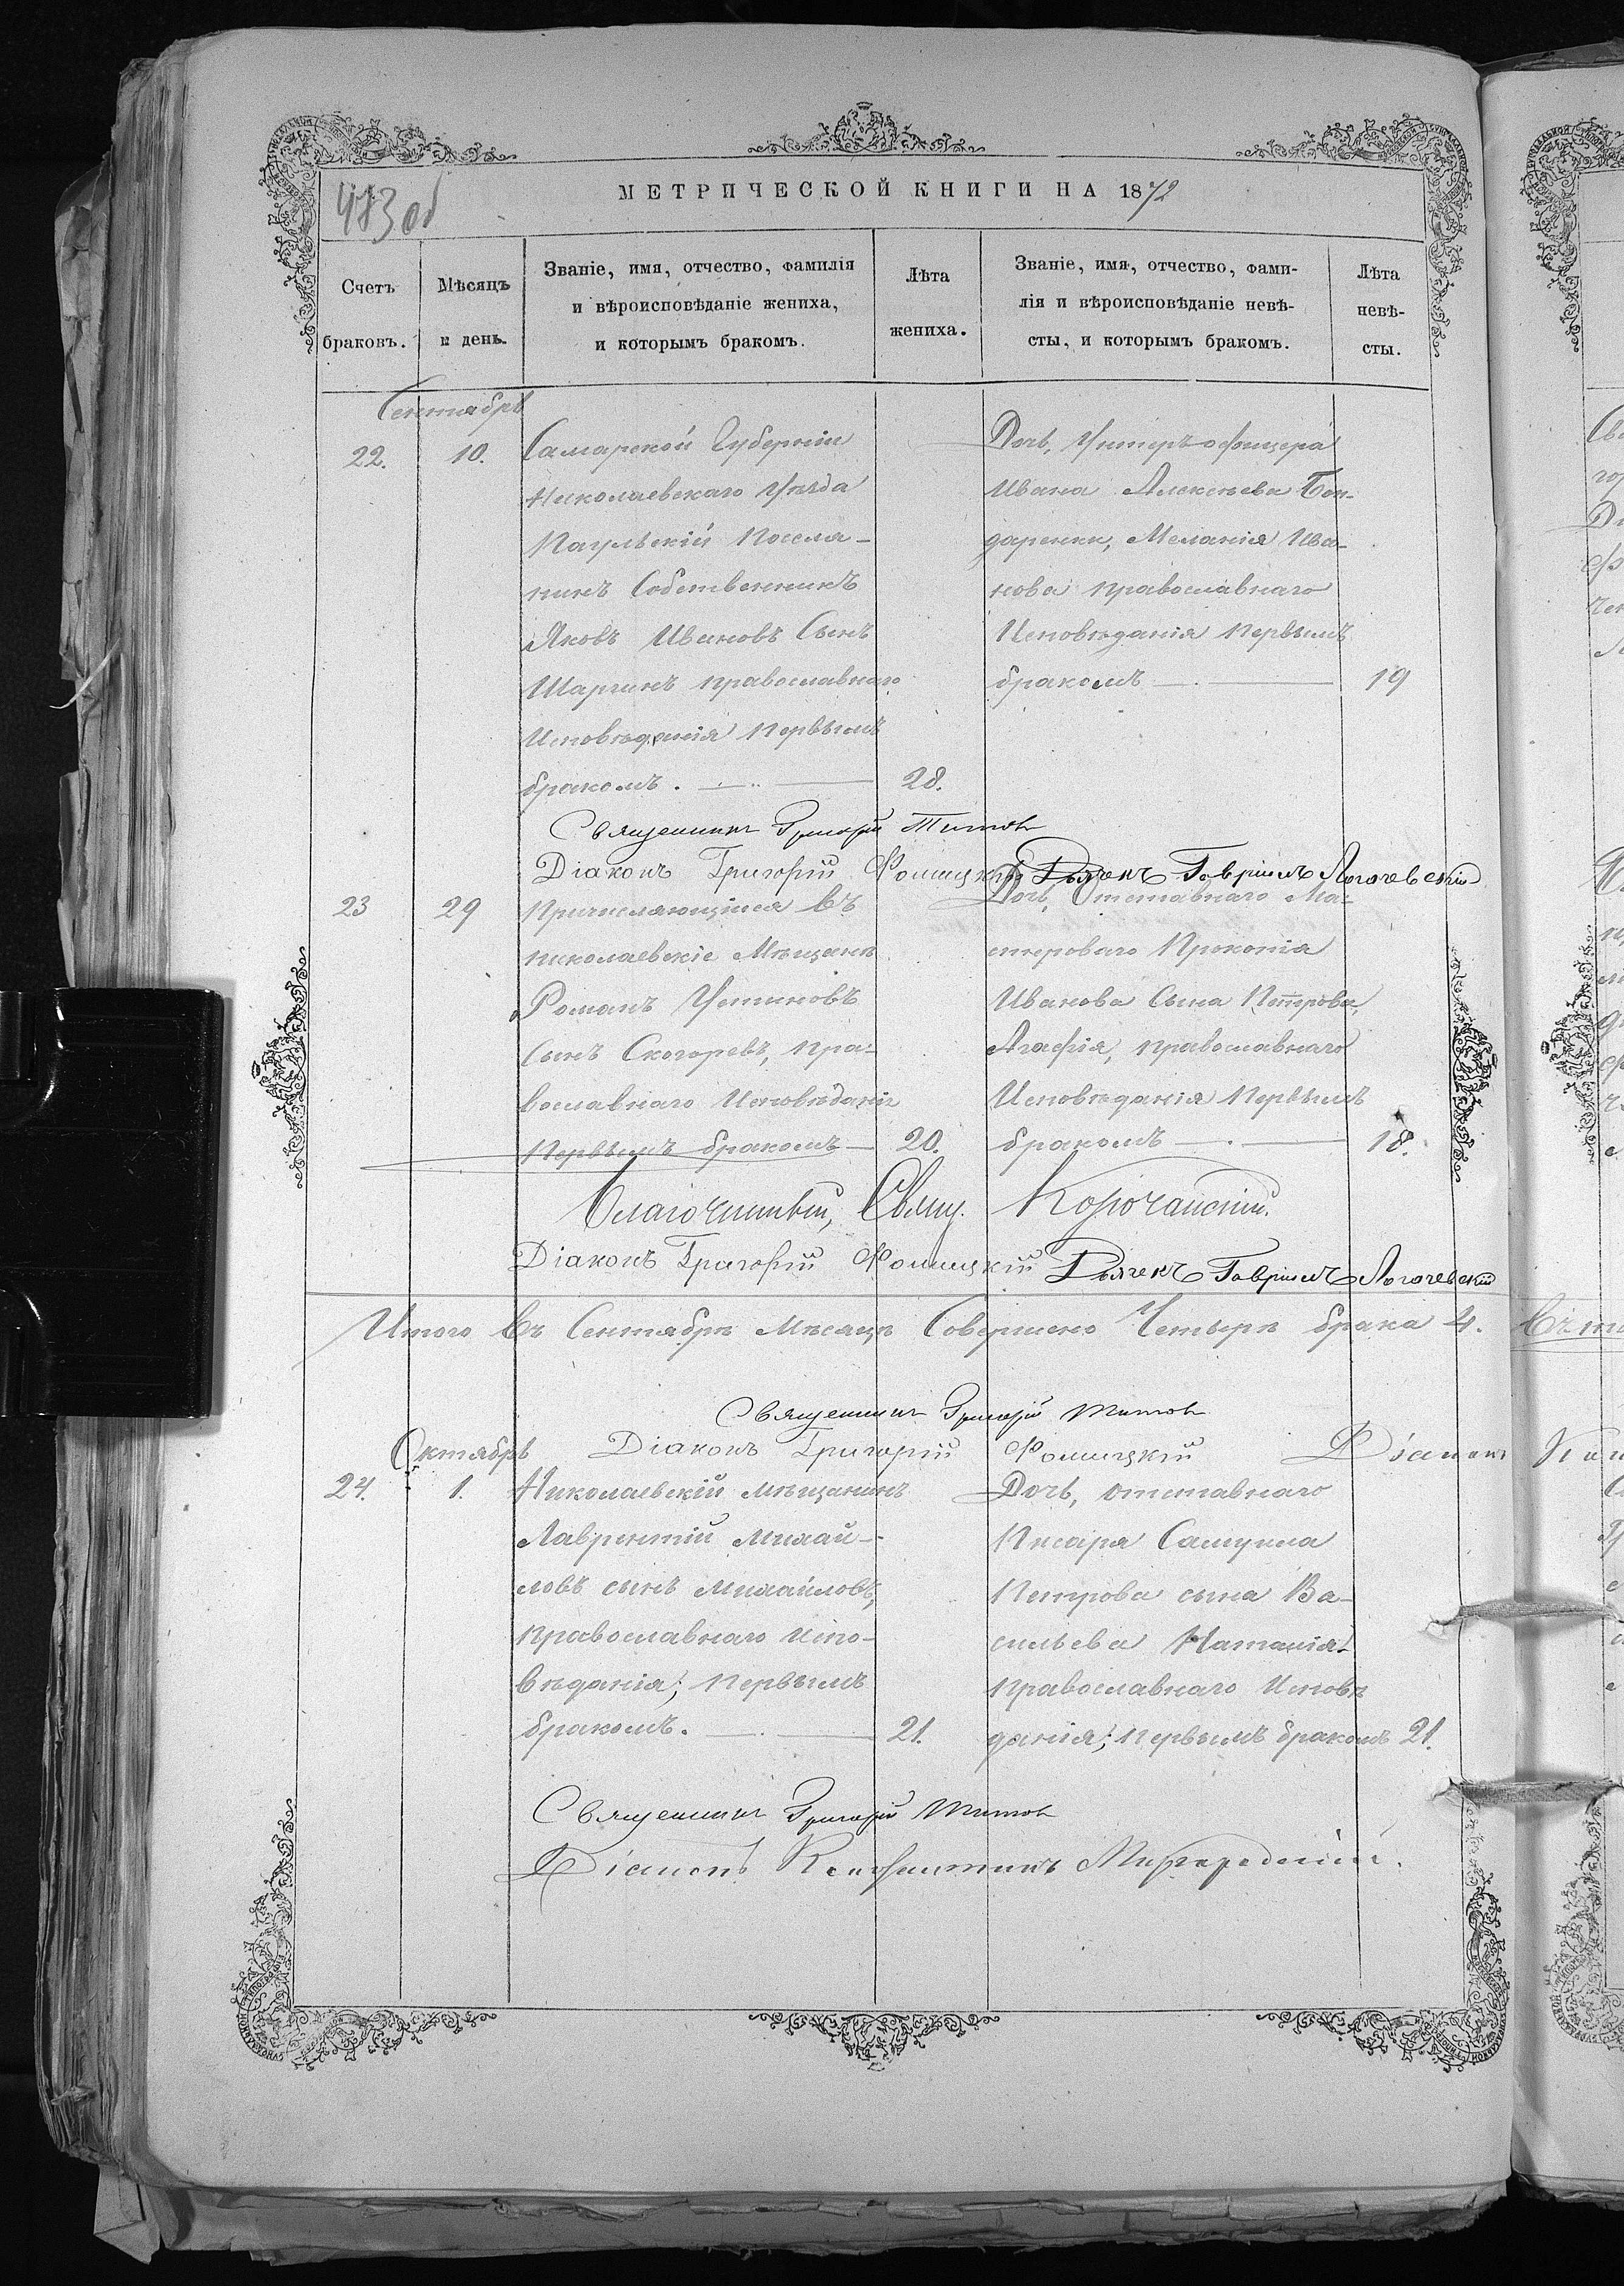 483 об
МЕТРИЧЕСКОЙ КНИГИ НА 1872
Счетъ браковъ.
Мѣсяцъ и день.
Званіе, имя, отчество, фамилія
и вѣроисповѣданіе жениха,
и которымъ бракомъ.
Лѣта
жениха.
Званіе, имя, отчество, фами-
лія и вѣроисповѣданіе невѣ-
сты, и которымъ бракомъ.
Лѣта
невѣ-
сты.
Сентябрь
22.
10.
Самарской Губерніи
Николаевскаго Уѣзда
Поселя-
нинъ Собственникъ
Яковъ Ивановъ Сынъ
Шаргинъ православнаго
Исповѣданія первымъ
бракомъ.
28.
Дочь, Унтеръ-офицера
Ивана Алексѣева Бон-
даренки, Меланія Ива-
нова православнаго
Исповѣданія первымъ
бракомъ
19
Священникъ Григорій Титовъ
Діаконъ Григорій Фомицкій Дьячекъ Гавріилъ Логачевскій
23
29
Причисляющійся въ
николаевскіе Мѣщане
Романъ Устиновъ
Сынъ Скогоревъ, пра-
вославнаго Исповѣданія
Первымъ бракомъ
20.
Дочь, Отставнаго Ма-
стероваго Прокопія
Иванова Сына Петрова,
Агафія, православнаго
Исповѣданія Первымъ
бракомъ
18.
Благочинный, Свящ. Корочанскій.
Діаконъ Григорій Фомицкій Дьячекъ Гавріилъ Логачевскій
Итого Въ Сентябрѣ Мѣсяцѣ Совершено Четыре брака 4.
Священникъ Григорій Титовъ
Діаконъ Григорій Фомицкій Діаконъ
Октябрь
24.
1.
Николаевскій мѣщанинъ
Лаврентій Михай-
ловъ сынъ Михайловъ,
православнаго испо-
вѣданія; первымъ
бракомъ.
21.
Дочь, отставнаго
Писаря Самуила
Петрова сына Ва-
сильева Наталія
православнаго Исповѣ
данія; первымъ бракомъ
21.
Священникъ Григорій Титовъ
Діаконъ Константинъ Миргородскій.